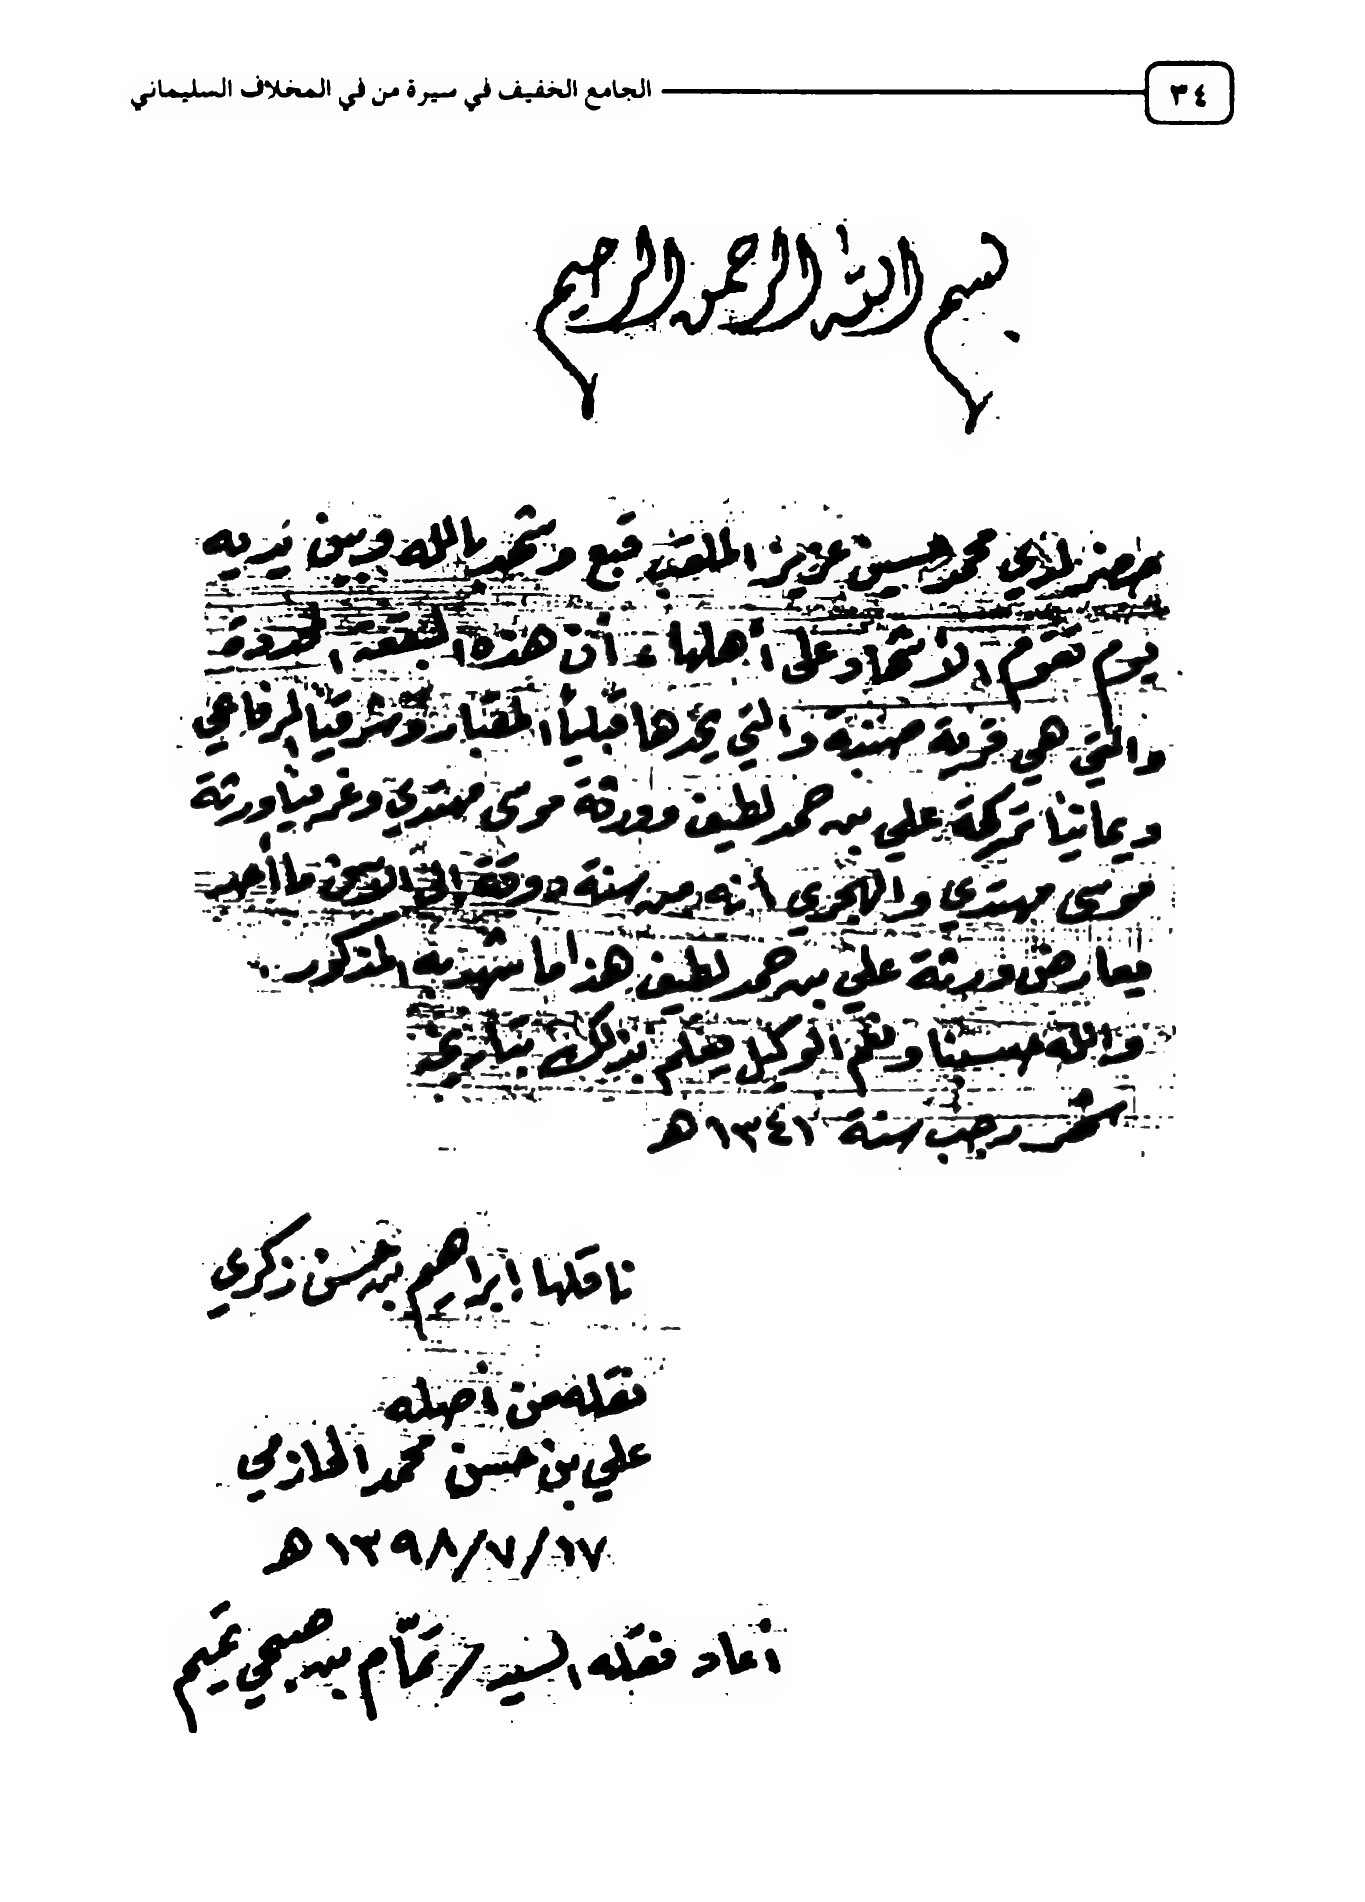 ٣٤
الجامع الخفيف في سيرة من في المخلاف السليماني
بسم الله الرحمن الرحيم
حضر لدي محمد حسين عزيز الملقب قبع وشهد بالله وبين يديه
يوم تقوم الأشهاد على أهلها، أن هذه البقعة المحدودة
والتي هي قرية صهبة والتي يحدها قبلياً المقبار وشرقيا لرفاعي
ويمانياً تركة علي بن حمد لطيف وورثة موسى مهتدي وغربياً ورثة
موسى مهتدي والهجري أنه من سنة دوقة إلى الآن ما أحد
يعارض ورثة علي بن حمد لطيف هذا ما شهد به المذكور.
والله حسبنا ونعم الوكيل يعلم بذلك بتاريخ
شهر رجب سنة ١٣٤١ هـ
ناقلها إبراهيم بن حسن زكري
نقله من أصله
علي بن حسن محمد الحازمي
١٧/٧/١٣٩٨ هـ
أعاد نقله السيد / تمّام بن صبحي تميم